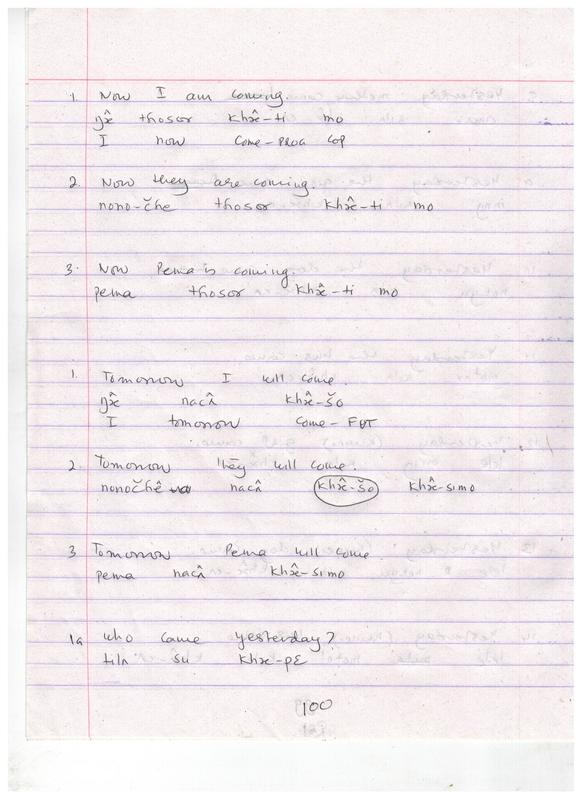 1. Now I am coming.
ŋx̂ thosor khx̂-ti mo
I now come-PROG COP
2. Now they are coming.
nono-čhe thosor khx̂-ti mo
3. Now Pema is coming.
pema thosor khx̂-ti mo
1. Tomorrow I will come.
ŋx̂ nacʌ̂ khx̂-šo
I tomorrow come-FUT
2. Tomorrow they will come.
nonočhê nacʌ̂ khx̂-šo khx̂-simo
3 Tomorrow Pema will come.
pema nacʌ̂ khx̂-simo
1a who came yesterday?
su khx-pɛ
100